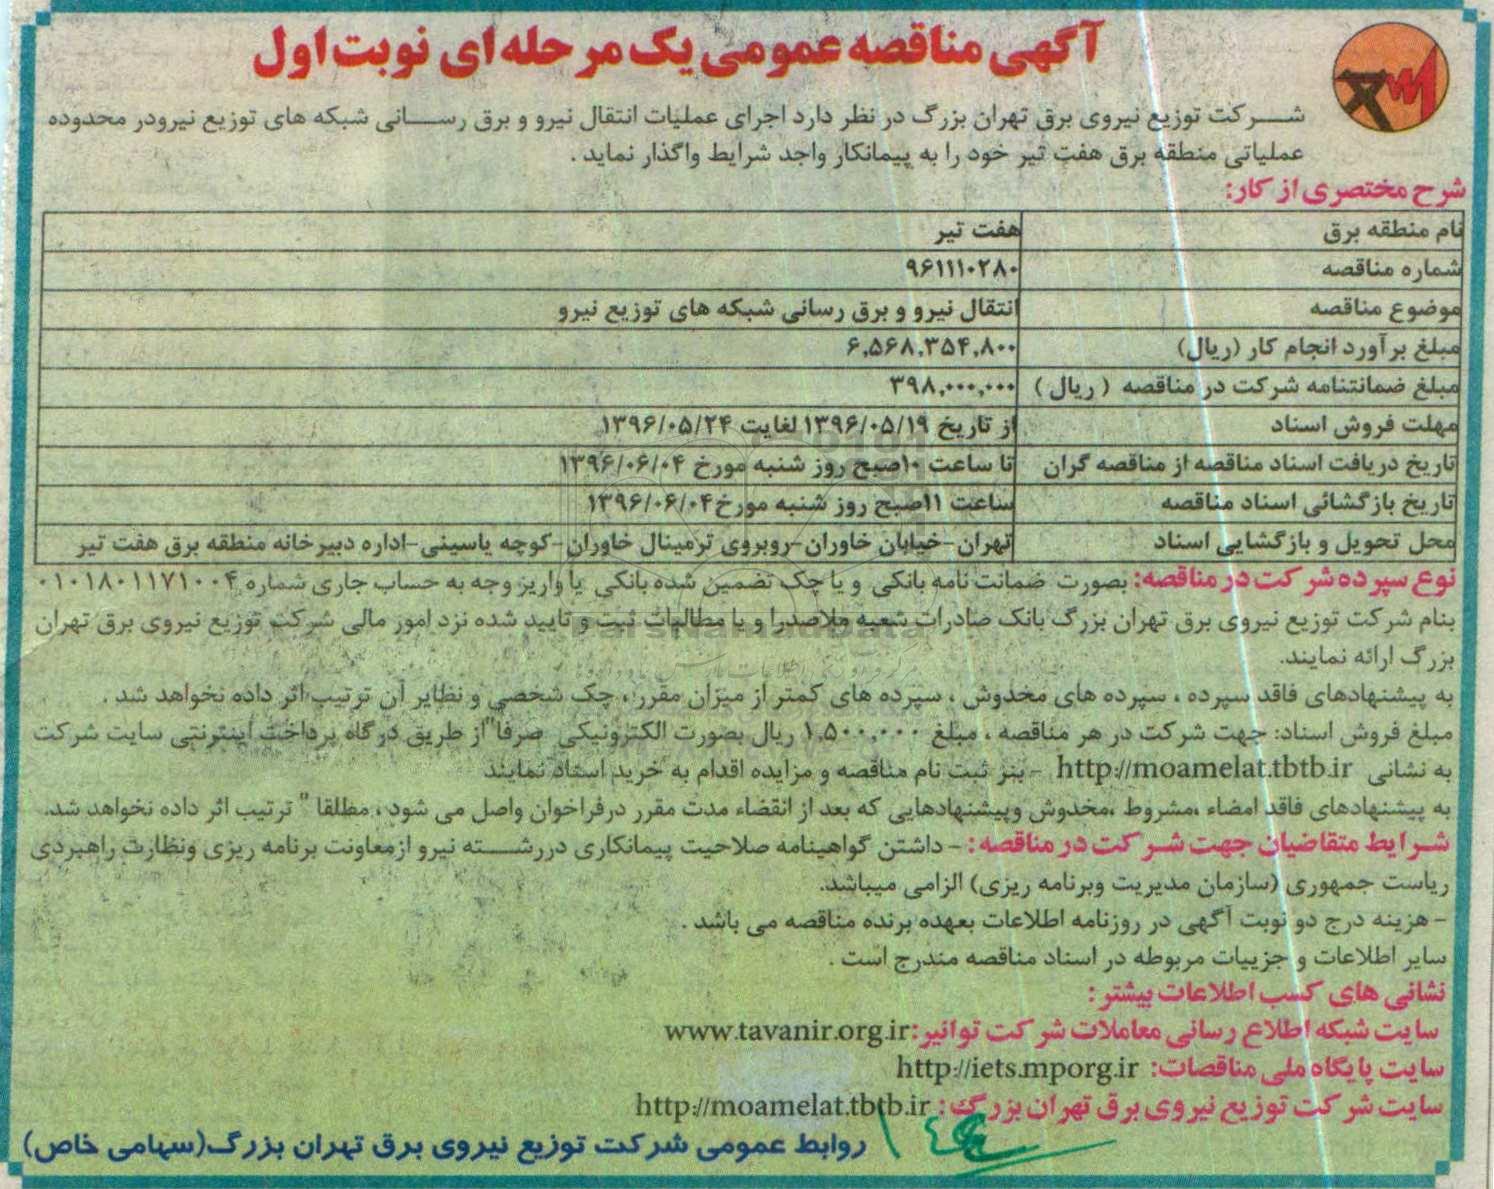 آگهی مناقصه عمومی یک مرحله ای نوبت اول
شرکت توزیع نیروی برق تهران بزرگ در نظر دارد اجرای عملیات انتقال نیرو و برق رسانی شبکه های توزیع نیرودر محدوده
عملیاتی منطقه برق هفت تیر خود را به پیمانکار واجد شرایط واگذار نماید .
شرح مختصری از کار:
نام منطقه برق هفت تیر
شماره مناقصه ۹۶۱۱۱۰۲۸۰
موضوع مناقصه انتقال نیرو و برق رسانی شبکه های توزیع نیرو
مبلغ برآورد انجام کار (ریال) ۶,۵۶۸,۳۵۴,۸۰۰
مبلغ ضمانتنامه شرکت در مناقصه ( ریال ) ۳۹۸,۰۰۰,۰۰۰
مهلت فروش اسناد از تاریخ ۱۳۹۶/۰۵/۱۹ لغایت ۱۳۹۶/۰۵/۲۴
تاریخ دریافت اسناد مناقصه از مناقصه گران تا ساعت ۱۰صبح روز شنبه مورخ ۱۳۹۶/۰۶/۰۴
تاریخ بازگشائی اسناد مناقصه ساعت ۱۱صبح روز شنبه مورخ۱۳۹۶/۰۶/۰۴
محل تحویل و بازگشایی اسناد تهران-خیابان خاوران-روبروی ترمینال خاوران-کوچه یاسینی-اداره دبیرخانه منطقه برق هفت تیر
نوع سپرده شرکت در مناقصه: بصورت ضمانت نامه بانکی و یا چک تضمین شده بانکی یا واریز وجه به حساب جاری شماره ۰۱۰۱۸۰۱۱۷۱۰۰۴
بنام شرکت توزیع نیروی برق تهران بزرگ بانک صادرات شعبه ملاصدرا و یا مطالبات ثبت و تایید شده نزد امور مالی شرکت توزیع نیروی برق تهران
بزرگ ارائه نمایند.
به پیشنهادهای فاقد سپرده ، سپرده های مخدوش ، سپرده های کمتر از میزان مقرر ، چک شخصی و نظایر آن ترتیب اثر داده نخواهد شد .
مبلغ فروش اسناد: جهت شرکت در هر مناقصه ، مبلغ ۱,۵۰۰,۰۰۰ ریال بصورت الکترونیکی صرفا"از طریق درگاه پرداخت اینترنتی سایت شرکت
به نشانی http://moamelat.tbtb.ir - بنر ثبت نام مناقصه و مزایده اقدام به خرید اسناد نمایند
به پیشنهادهای فاقد امضاء ،مشروط ،مخدوش وپیشنهادهایی که بعد از انقضاء مدت مقرر درفراخوان واصل می شود ، مطلقا " ترتیب اثر داده نخواهد شد.
شرایط متقاضیان جهت شرکت در مناقصه: - داشتن گواهینامه صلاحیت پیمانکاری دررشته نیرو ازمعاونت برنامه ریزی ونظارت راهبردی
ریاست جمهوری (سازمان مدیریت وبرنامه ریزی) الزامی میباشد.
- هزینه درج دو نوبت آگهی در روزنامه اطلاعات بعهده برنده مناقصه می باشد .
سایر اطلاعات و جزییات مربوطه در اسناد مناقصه مندرج است .
نشانی های کسب اطلاعات بیشتر :
سایت شبکه اطلاع رسانی معاملات شرکت توانیر: www.tavanir.org.ir
سایت پایگاه ملی مناقصات: http://iets.mporg.ir
سایت شرکت توزیع نیروی برق تهران بزرگ : http://moamelat.tbtb.ir
روابط عمومی شرکت توزیع نیروی برق تهران بزرگ(سهامی خاص)
ParsNamadData